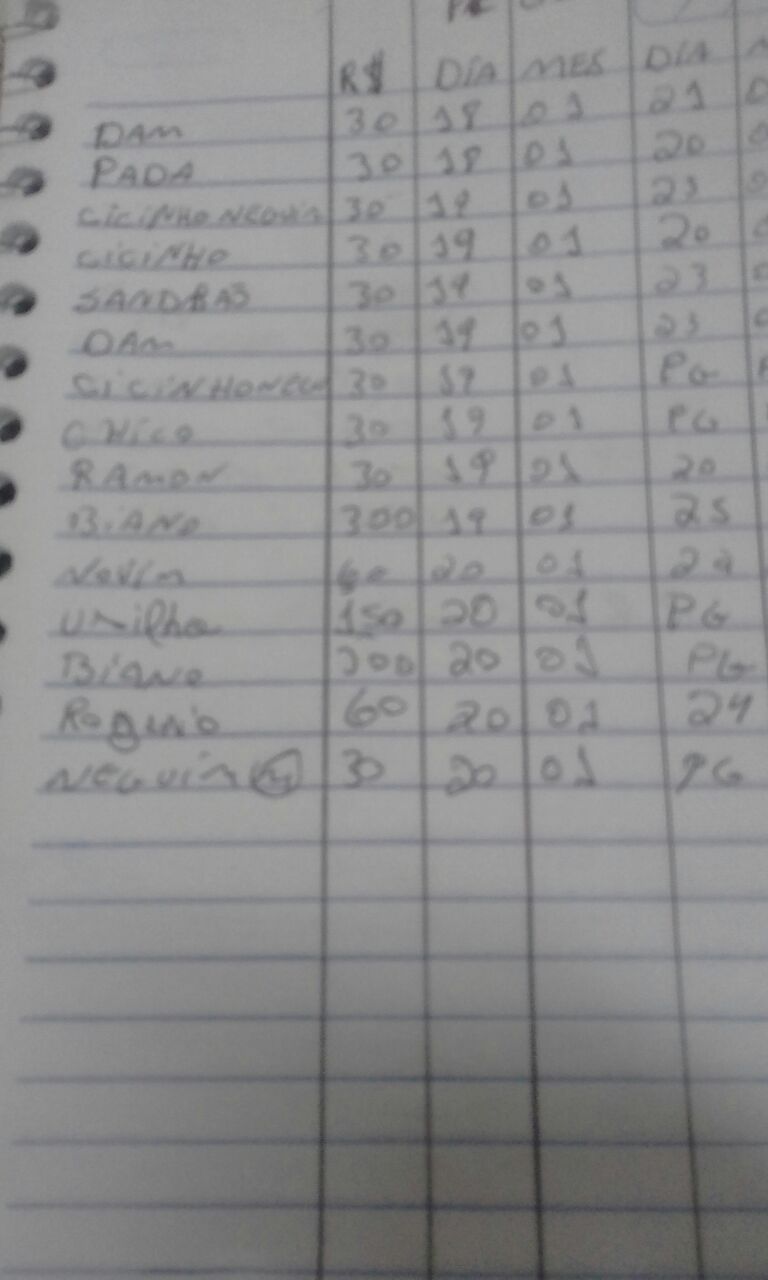 R$ DIA MES DIA
DAM 30 18 01 21
PADA 30 18 01 20
CICINHO NEGUIN 30 19 01 23
CICINHO 30 19 01 20
30 19 01 23
DAM 30 19 01 23
CICINHO 30 19 01 PG
CHICO 30 19 01 PG
RAMON 30 19 01 20
BIANO 300 19 01 25
60 20 01
150 20 01 PG
BIANO 200 20 01 PG
60 20 01 24
NEGUIN 30 20 01 PG